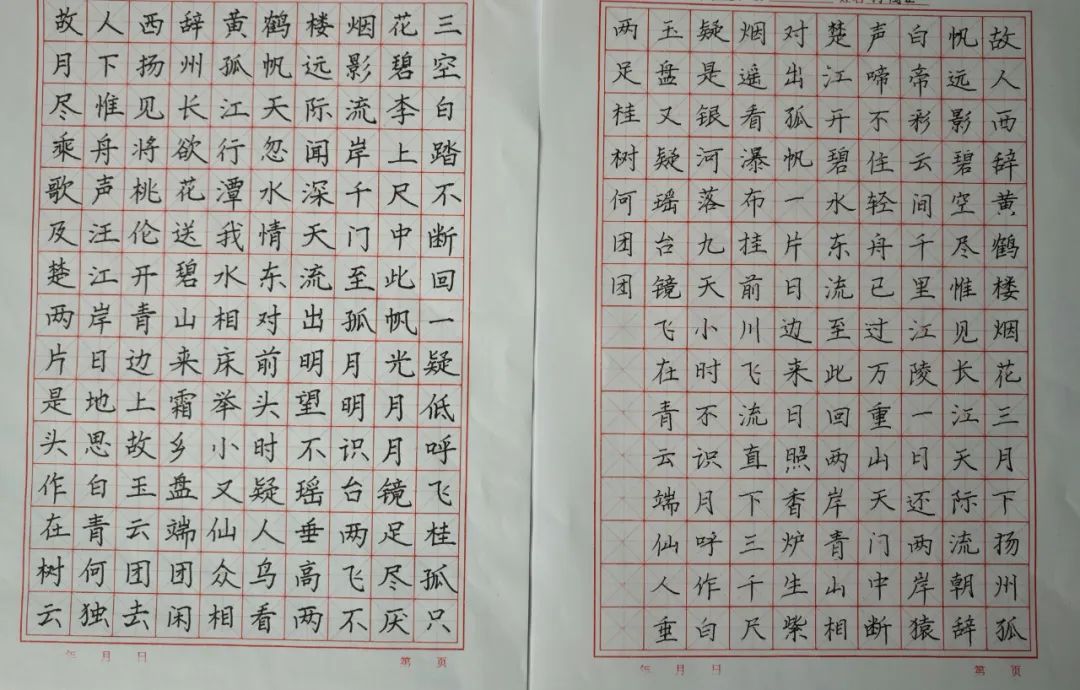 故人西辞黄鹤楼烟花三
月下扬州孤帆远影碧空
尽惟见长江天际流李白
乘舟将欲行忽闻岸上踏
歌声桃花潭水深千尺不
及汪伦送我情天门中断
楚江开碧水东流至此回
两岸青山相对出孤帆一
片日边来床前明月光疑
是地上霜举头望明月低
头思故乡小时不识月呼
作白玉盘又疑瑶台镜飞
在青云端仙人垂两足桂
树何团团众鸟高飞尽孤
云独去闲相看两不厌只
年 月 日 第 页
故人西辞黄鹤楼烟花三月下扬州孤
帆远影碧空尽惟见长江天际流朝辞
白帝彩云间千里江陵一日还两岸猿
声啼不住轻舟已过万重山天门中断
楚江开碧水东流至此回两岸青山相
对出孤帆一片日边来日照香炉生紫
烟遥看瀑布挂前川飞流直下三千尺
疑是银河落九天小时不识月呼作白
玉盘又疑瑶台镜飞在青云端仙人垂
两足桂树何团团
年 月 日 第 页